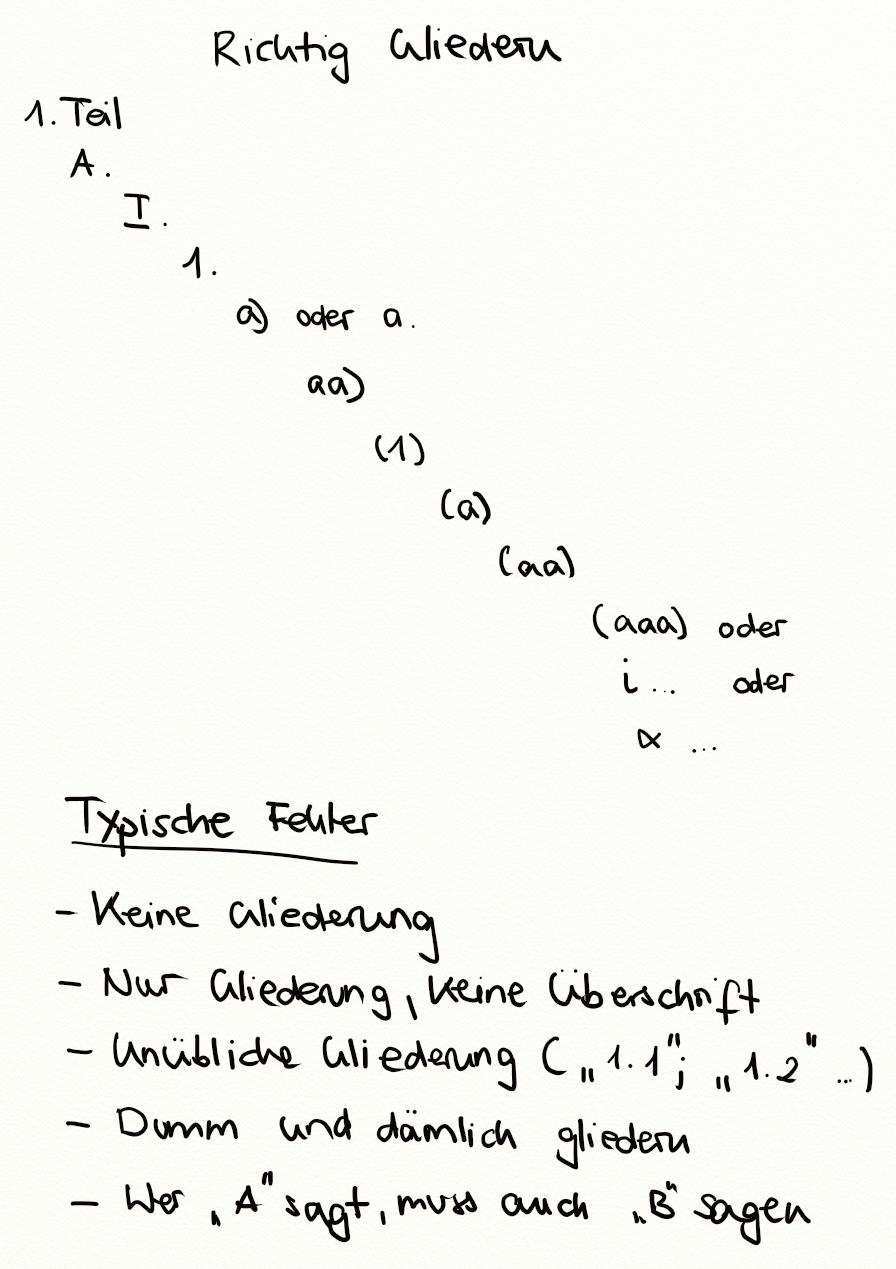 Richtig Gliedern
1. Teil
A.
I.
1.
a) oder a.
aa)
(1)
(a)
(aa)
(aaa) oder
i... oder
α ...
Typische Fehler
- Keine Gliederung
- Nur Gliederung, keine Überschrift
- Unübliche Gliederung („1.1"; „1.2" ...)
- Dumm und dämlich gliedern
- Wer „A" sagt, muss auch „B" sagen